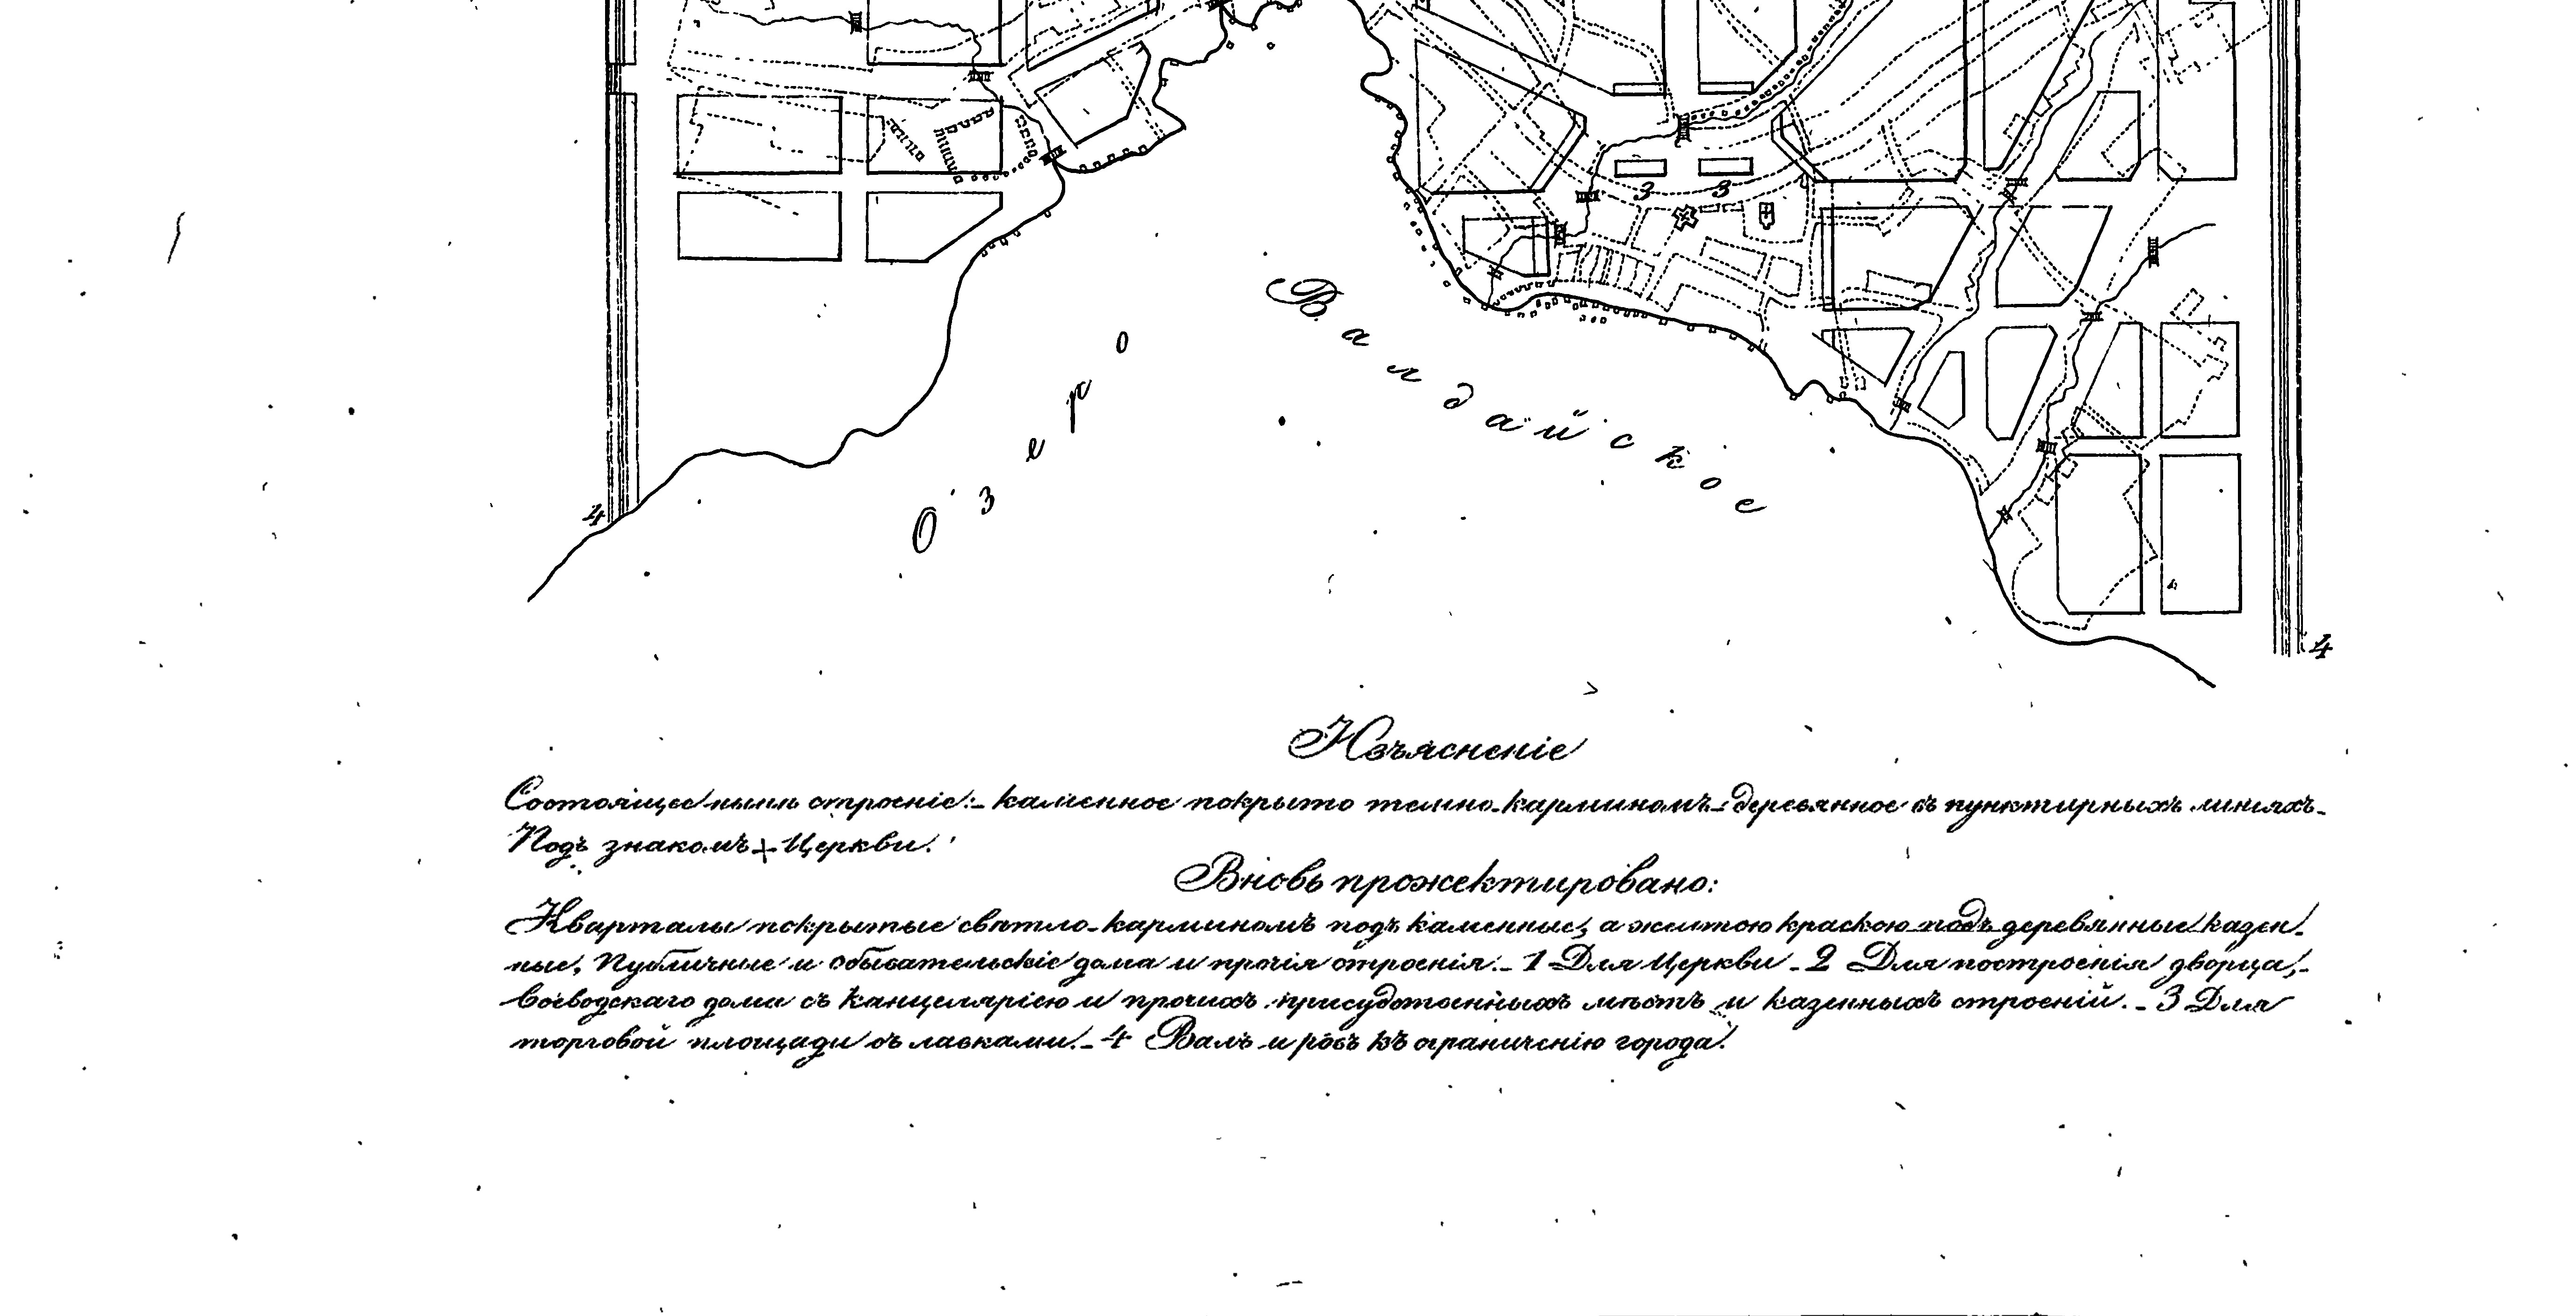 3 3
Озеро
Валдайское
4
4
Изъясненіе
Состоящее нынѣ строеніе:- каменное покрыто темно-карминомъ - деревянное въ пунктирныхъ линіяхъ.-
Подъ знакомъ + Церкви.
Вновь прожектировано:
Кварталы покрытые свѣтло-карминомъ подъ каменные, а желтою краскою подъ деревянные казен-
ные, публичные и обывательскіе дома и прочія строенія.- 1 Для Церкви - 2 Для построенія дворца,-
воеводскаго дома съ канцеляріею и прочихъ присудственныхъ мѣстъ и казенныхъ строеній. - 3 Для
торговой площади съ лавками.- 4 Валъ и ровъ къ ограниченію города.